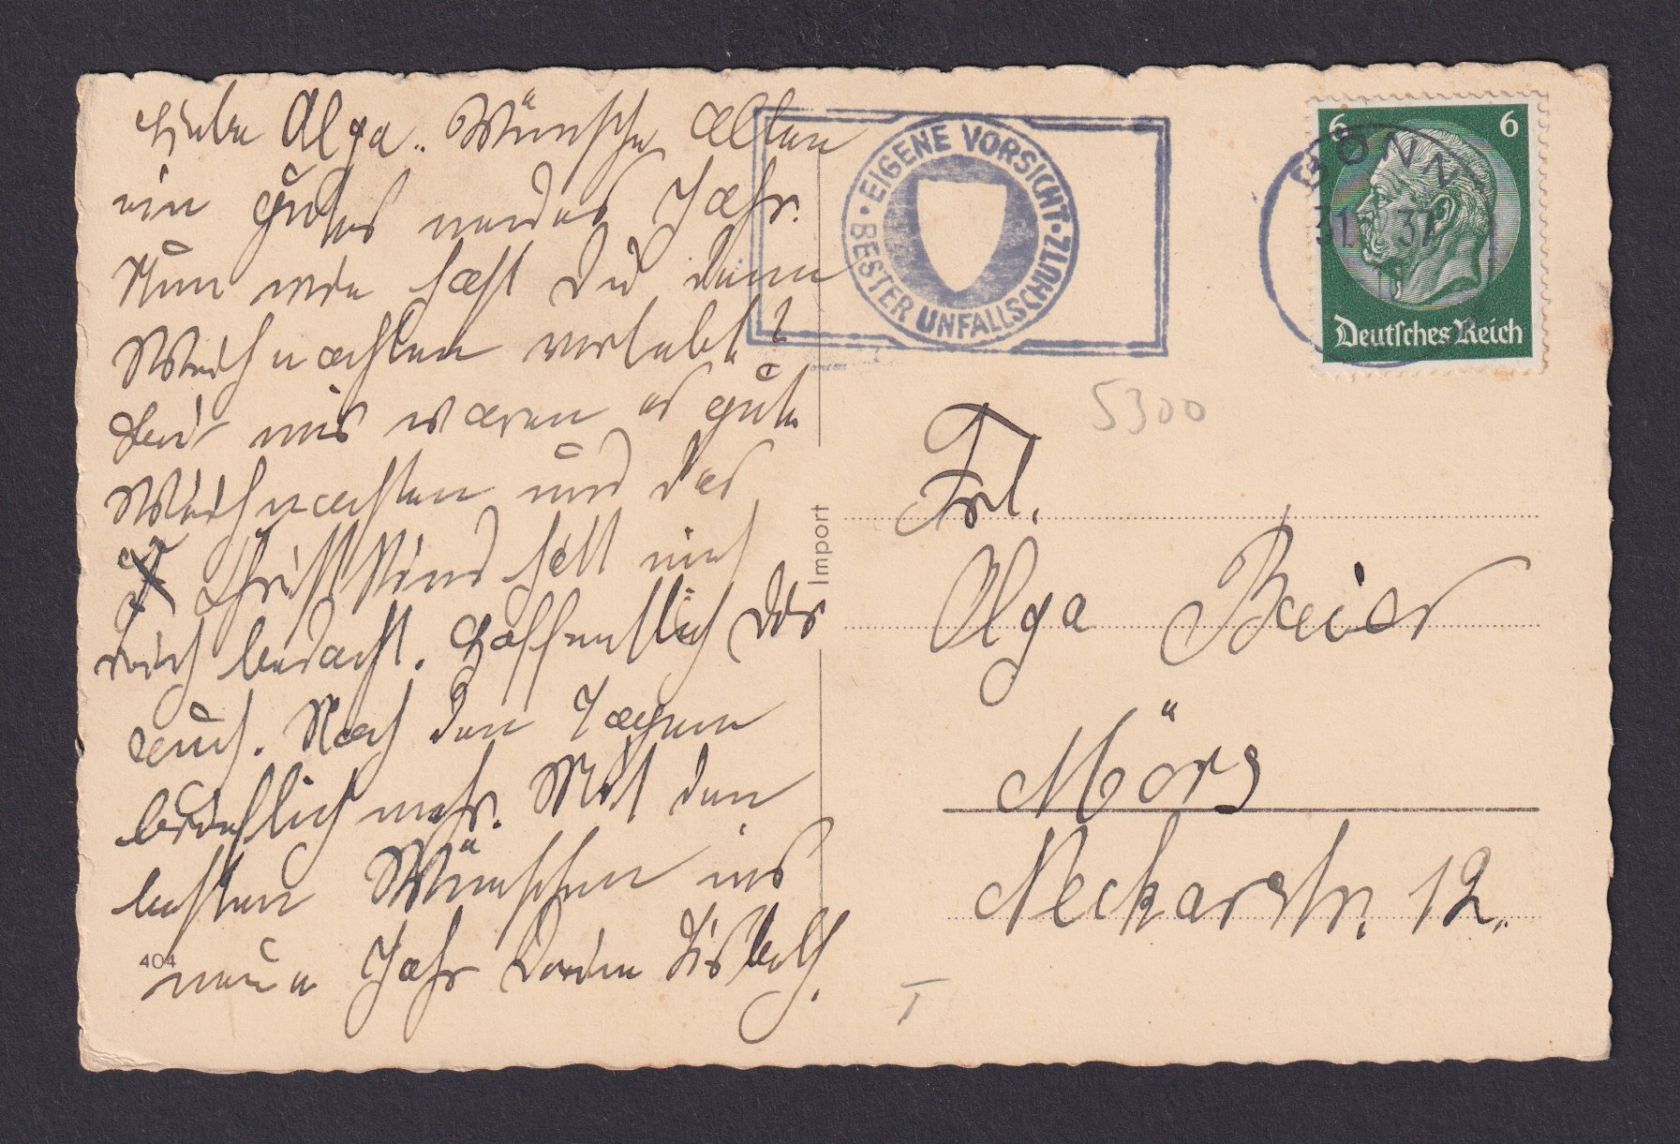 Liebe Olga. Wünsche allen
ein gutes neues Jahr.
Nun wie hast Du denn
Weihnachten verlebt?
Bei uns waren es gute
Weihnachten und das
Christkind hatt mich
reich bedacht. Hoffentlich Dir
auch. Nach den Tagen
brieflich mehr. Mit den
besten Wünschen ins
neue Jahr Deine
404
Import
EIGENE VORSICHT · BESTER UNFALLSCHUTZ ·
BONN
31 37
6 6
Deutsches Reich
5300
Frl.
Olga Baier
Mörs
Neckarstr. 12.
I